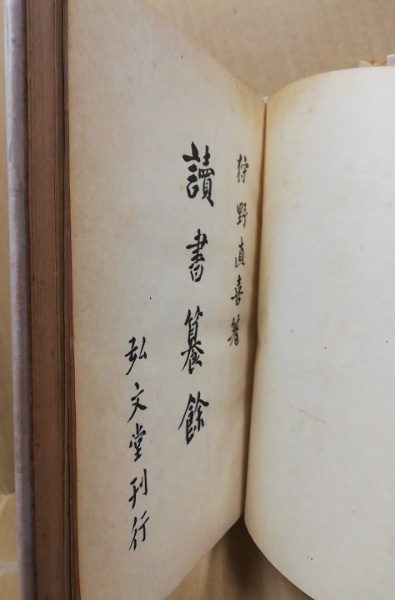 狩野直喜著
讀書纂餘
弘文堂刊行